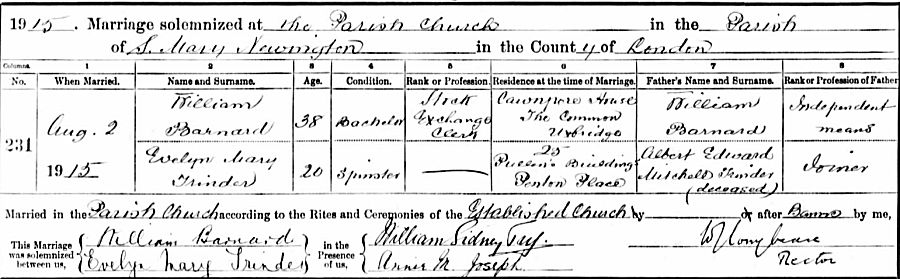 1915. Marriage solemnized at the Parish Church in the Parish
of S. Mary Newington in the County of London
Columns. 1 2 3 4 5 6 7 8
No. When Married. Name and Surname. Age. Condition. Rank or Profession. Residence at the time of Marriage. Father's Name and Surname. Rank or Profession of Father
231 Aug. 2 William Barnard 38 Bachelor Stock Exchange Clerk Cawnpore House The Common Uxbridge William Barnard Independent means
1915 Evelyn Mary Trinder 20 Spinster 25 Pullens Buildings Penton Place Albert Edward Mitchell Trinder (deceased) Joiner
Married in the Parish Church according to the Rites and Ceremonies of the Established Church by or after Banns by me,
This Marriage was solemnized between us, William Barnard Evelyn Mary Trinder in the Presence of us, William Sidney Annie M. Joseph Rector